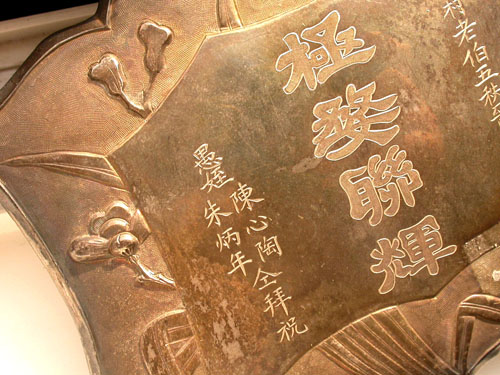 村老伯五秩
極婺聯輝
愚姪
陳心陶仝拜祝
朱炳年